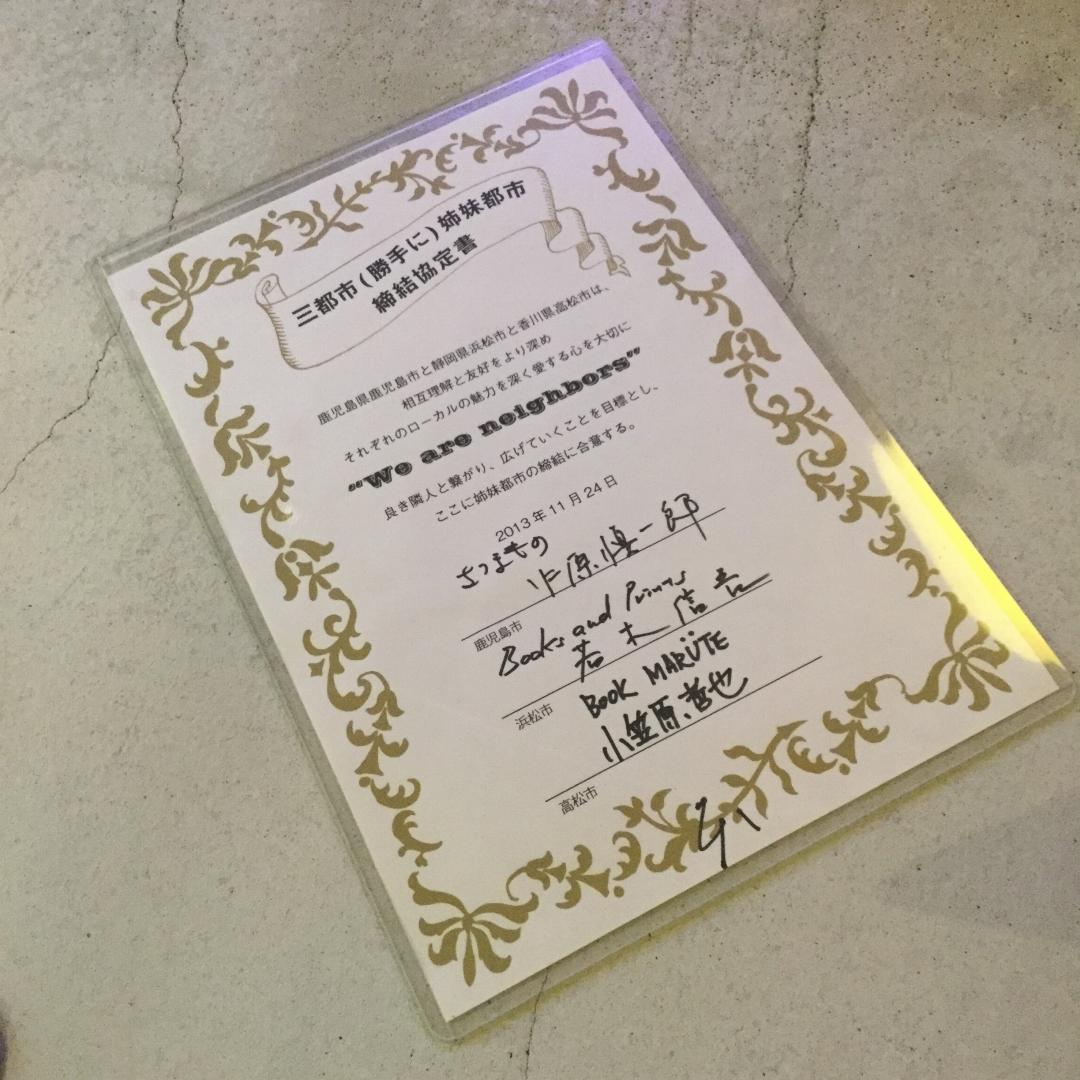 三都市(勝手に)姉妹都市
締結協定書
鹿児島県鹿児島市と静岡県浜松市と香川県高松市は、
相互理解と友好をより深め
それぞれのローカルの魅力を深く愛する心を大切に
"We are neighbors"
良き隣人と繋がり、広げていくことを目標とし、
ここに姉妹都市の締結に合意する。
2013年11月24日
さつまもの
原慎一郎
鹿児島市
Books and Prints
若木信吾
浜松市
BOOK MARÜTE
小笠原哲也
高松市